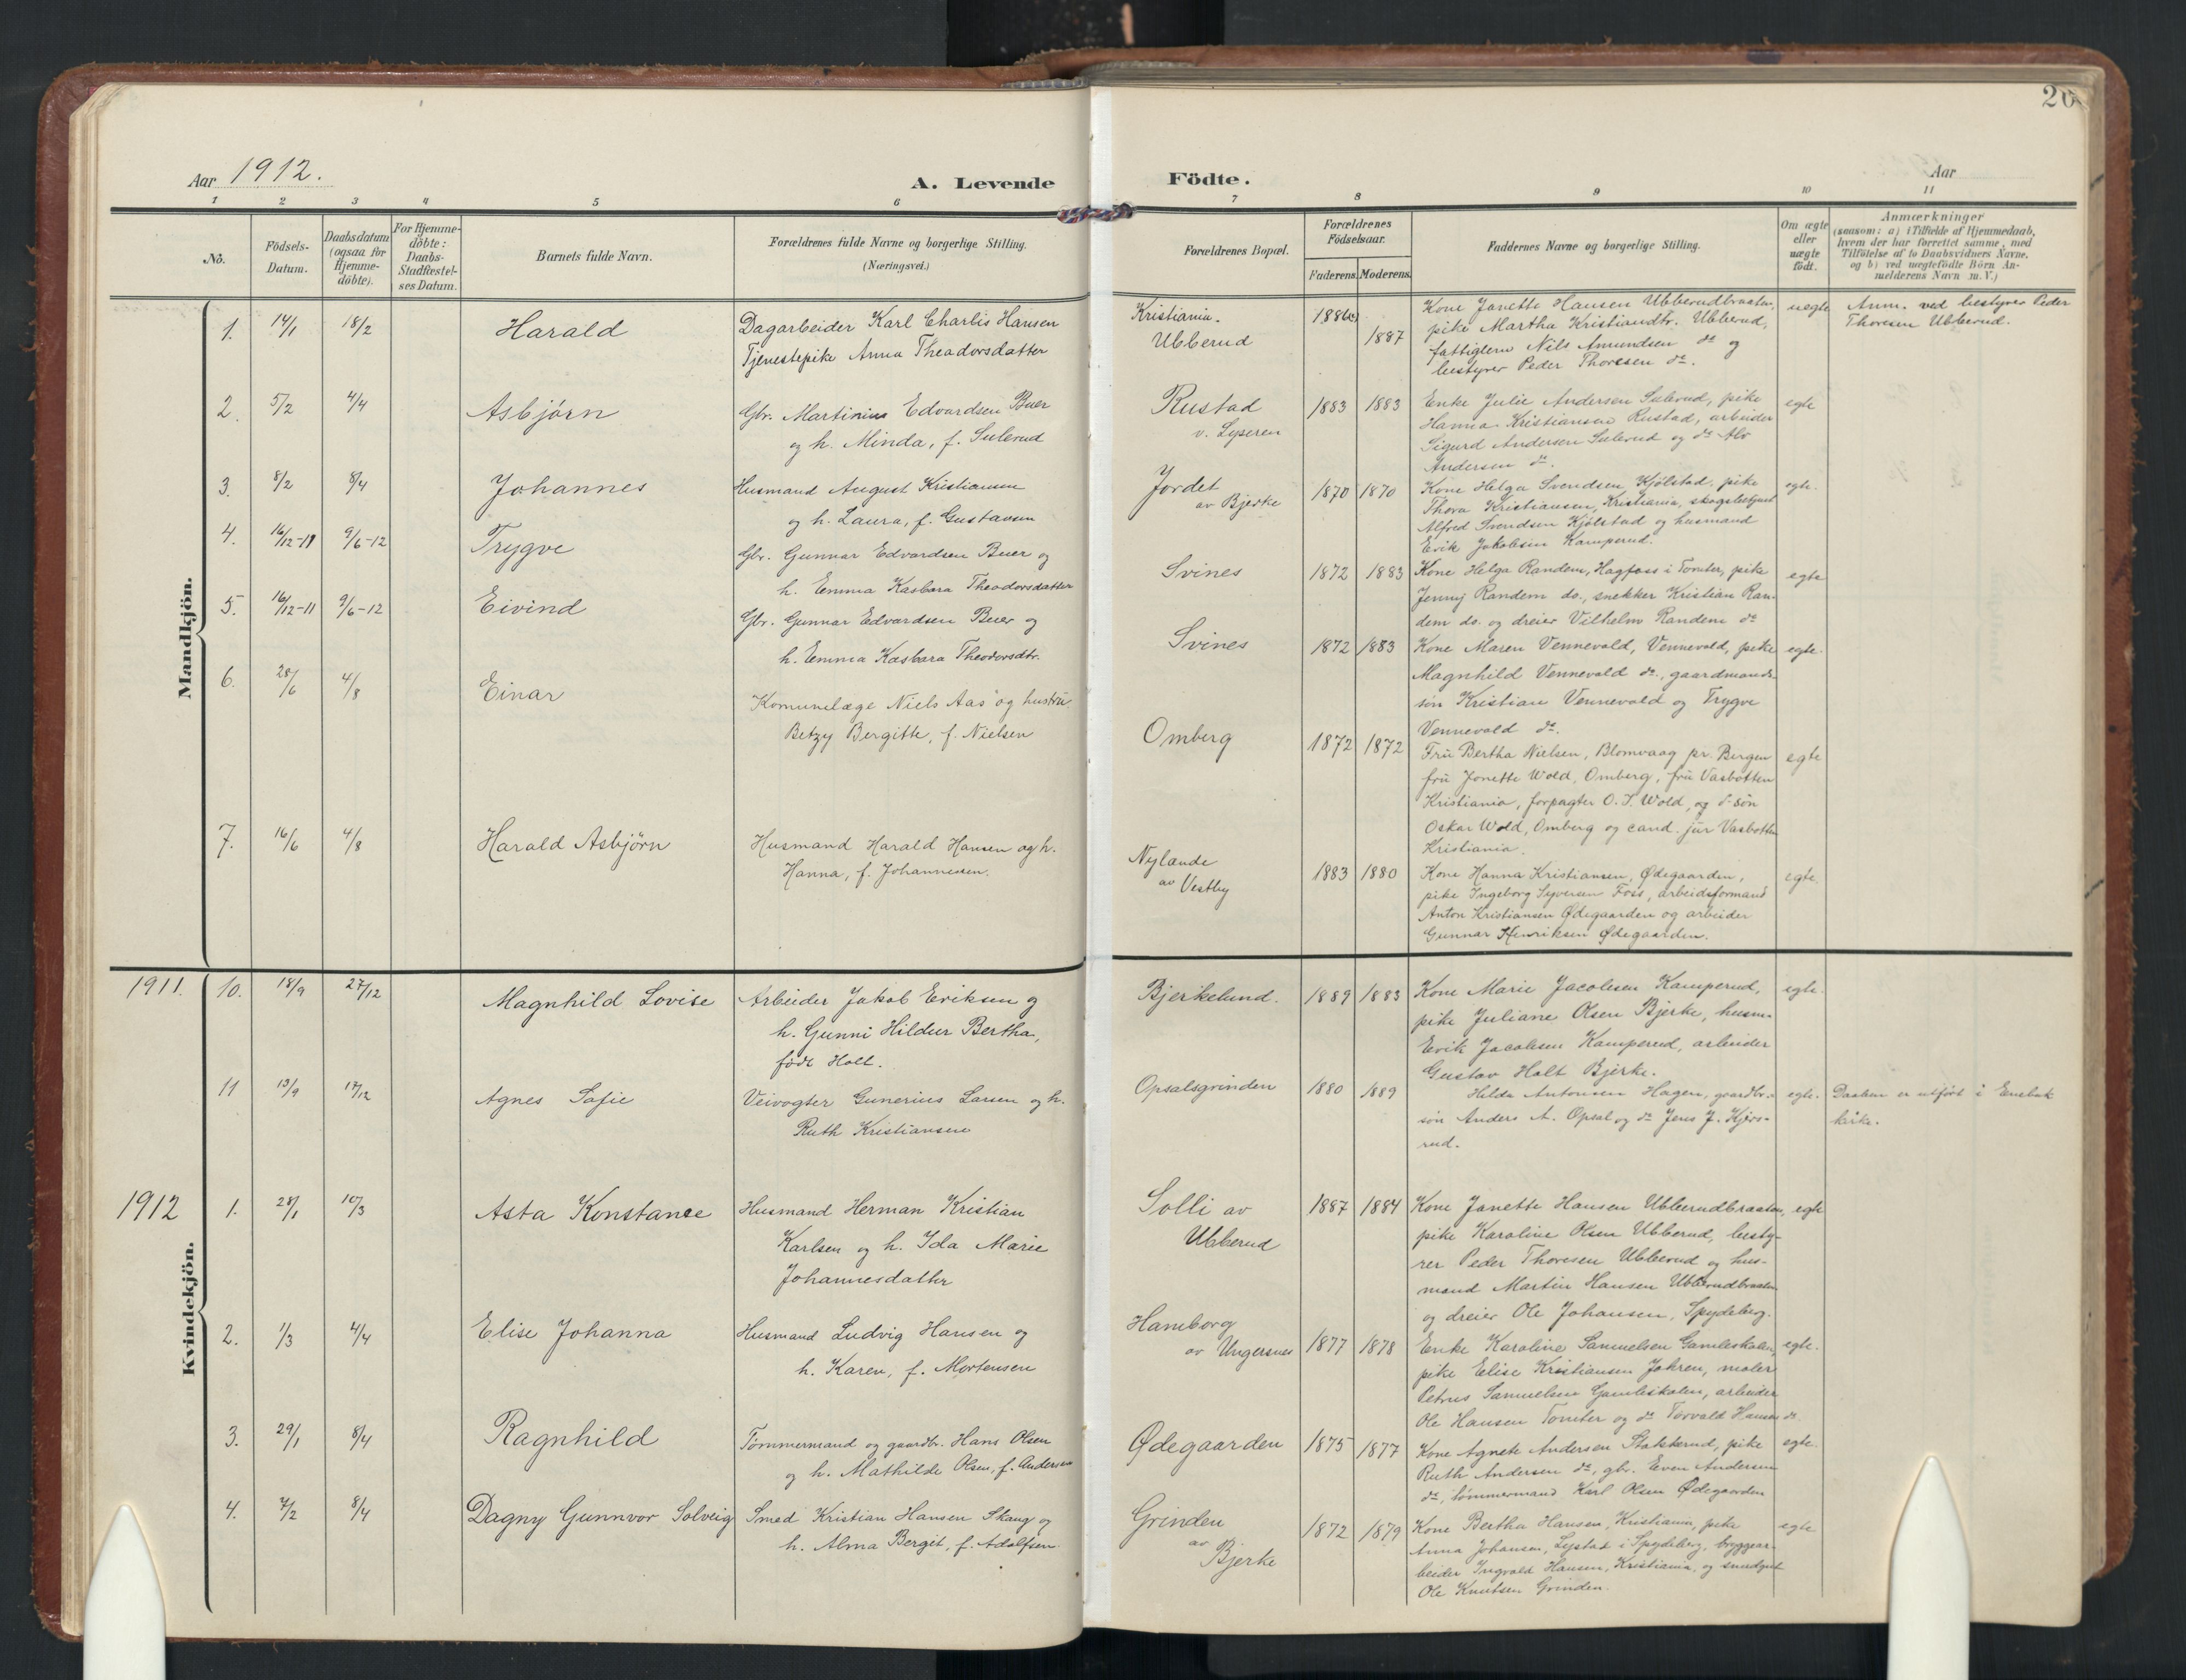 26
Aar 1912.
A. Levende
Födte.
Aar
1 2 3 4 5 6 7 8 9 10 11
No.
Födsels-
Datum.
Daabsdatum
(ogsaa for
Hjemme-
döbte).
For Hjemme-
döbte:
Daabs-
Stadfæstel-
ses Datum.
Barnets fulde Navn.
Forældrenes fulde Navne og borgerlige Stilling.
(Næringsvei.)
Forældrenes Bopæl.
Forældrenes
Födselsaar.
Faderens. Moderens.
Faddernes Navne og borgerlige Stilling.
Om ægte
eller
uægte
födt.
Anmærkninger
(saasom: a) i Tilfælde af Hjemmedaab,
hvem der har forrettet samme, med
Tilföielse af to Daabsvidners Navne,
og b) ved uægtefödte Börn An-
melderens Navn m. V.)
Mandkjön.
1. 14/1 18/2 Harald
Dagarbeider Karl Charlis Hansen
Tjenestepike Anna Theadorsdatter
Kristiania.
Ubberud
1886
1887
Kone Janette Hansen Ubberudbraaten,
pike Martha Kristiandtr. Ubberud,
fattiglem Nils Amundsen do og
bestyrer Peder Thoresen do.
uegte
Anm. ved bestyrer Peder
Thoresen Ubberud.
2. 5/2 4/4 Asbjørn
Gbr. Martinius Edvardsen Buer
og h. Minda, f. Sulerud
Rustad
v. Lyseren
1883 1883
Enke Julie Andersen Sulerud, pike
Hanna Kristiansen Rustad, arbeider
Sigurd Andersen Sulerud og do Alv
Andersen do.
egte
3. 8/2 8/4 Johannes
Husmand August Kristiansen
og h. Laura, f. Gustavsen
Jordet
av Bjerke
1870 1870
Kone Helga Svendsen Kjølstad, pike
Thora Kristiansen, Kristiania, skogsbetjent
Alfred Svendsen Kjølstad og husmand
Erik Jakobsen Kamperud.
egte.
4. 16/12-11 9/6-12 Trygve
Gbr. Gunnar Edvardsen Buer og
h. Emma Kasbara Theodorsdatter
Svines
1872 1883
Kone Helga Randem, Hagfoss i Tomter, pike
Jenny Randem do., snekker Kristian Ran-
dem do. og dreier Vilhelm Randem do
egte
5. 16/12-11 9/6-12 Eivind
Gbr. Gunnar Edvardsen Buer og
h. Emma Kasbara Theodorsdtr.
Svines
1872 1883
Kone Maren Vennevold, Vennevold, pike
Magnhild Vennevold do., gaardmands-
søn Kristian Vennevold og Trygve
Vennevold do.
egte.
6. 28/6 4/8 Einar
Komunelæge Niels Aas og hustru
Betzy Bergitte, f. Nielsen
Omberg
1872 1872
Fru Bertha Nielsen, Blomvaag pr. Bergen
fru Jonette Wold, Omberg, fru Vasbotten
Kristiania, forpagter O. J. Wold, og d. søn
Oskar Wold, Omberg og cand. jur Vasbotten
Kristiania.
egte
7. 16/6 4/8 Harald Asbjørn
Husmand Harald Hansen og h.
Hanna, f. Johannessen.
Nylænde
av Vestby
1883 1880
Kone Hanna Kristiansen, Ødegaarden,
pike Ingeborg Syversen Foss, arbeidsformand
Anton Kristiansen Ødegaarden og arbeider
Gunnar Henriksen Ødegaarden.
egte.
Kvindekjön.
1911. 10. 18/9 27/12 Magnhild Lovise
Arbeider Jakob Eriksen og
h. Gunni Hildur Bertha,
født Holt.
Bjerkelund.
1889 1883
Kone Marie Jacobsen Kamperud,
pike Juliane Olsen Bjerke, husm.
Erik Jacobsen Kamperud, arbeider
Gustav Holt Bjerke.
egte.
11 13/9 17/12 Agnes Sofie
Veivogter Gunerius Larsen og h.
Ruth Kristiansen
Opsalsgrinden
1880 1889
Hilda Antonsen Hagen, gaardbr.-
søn Anders A. Opsal og do Jens J. Kjers-
rud.
egte.
Daaben er utført i Enebak
kirke.
1912 1. 28/1 10/3 Asta Konstanse
Husmand Herman Kristian
Karlsen og h. Ida Marie
Johannesdatter
Solli av
Ubberud
1887 1884
Kone Janette Hansen Ubberudbraaten,
pike Karoline Olsen Ubberud, besty-
rer Peder Thoresen Ubberud og hus-
mand Martin Hansen Ubberudbraaten
og dreier Ole Johansen, Spydeberg.
egte
2. 1/3 4/4 Elise Johanna
Husmand Ludvig Hansen og
h. Karen, f. Mortensen
Hamborg
av Ungersnes
1877 1878
Enke Karoline Samuelsen Gamleskolen,
pike Elise Kristiansen Jahren, maler
Petrus Samuelsen Gamleskolen, arbeider
Ole Hansen Tomter og do Torvald Hansen do.
egte.
3. 29/1 8/4 Ragnhild
Tømmermand og gaardbr. Hans Olsen
og h. Mathilde Olsen, f. Andersen
Ødegaarden
1875 1877
Kone Agnete Andersen Stakkerud, pike
Ruth Andersen do, gbr. Even Andersen
do, tømmermand Karl Olsen Ødegaarden
egte.
4. 7/2 8/4 Dagny Gunnvor Solveig
Smed Kristian Hansen Skaug og
h. Alma Bergit, f. Adolfsen
Grinden
av
Bjerke
1872 1879
Kone Bertha Hansen, Kristiania, pike
Anna Johansen, Lystad i Spydeberg, bryggear-
beider Ingvald Hansen, Kristiania, og smedgut
Ole Knutsen Grinden.
egte